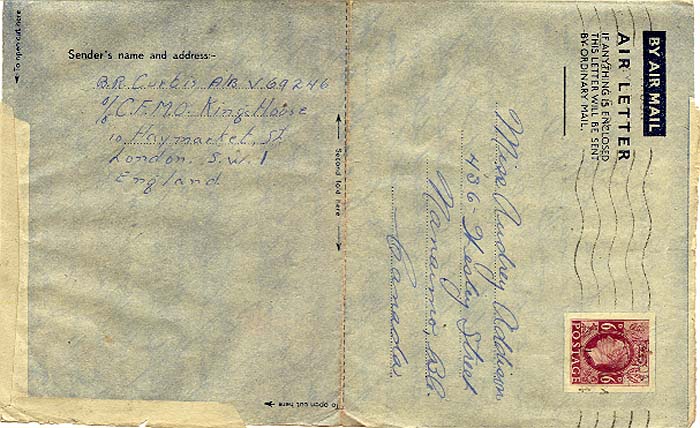 To open cut here
Sender's name and address:-
B.R. Curtis A.B. V 69246
c/o C.F.M.O. Kings House
10 Haymarket, St
London. S.W. 1
England
Second fold here
To open cut here
BY AIR MAIL
AIR LETTER
IF ANYTHING IS ENCLOSED
THIS LETTER WILL BE SENT
BY ORDINARY MAIL.
Miss Audrey Addison
436 - Wesley Street
Nanaimo, B.C.
Canada
6D 6D
POSTAGE